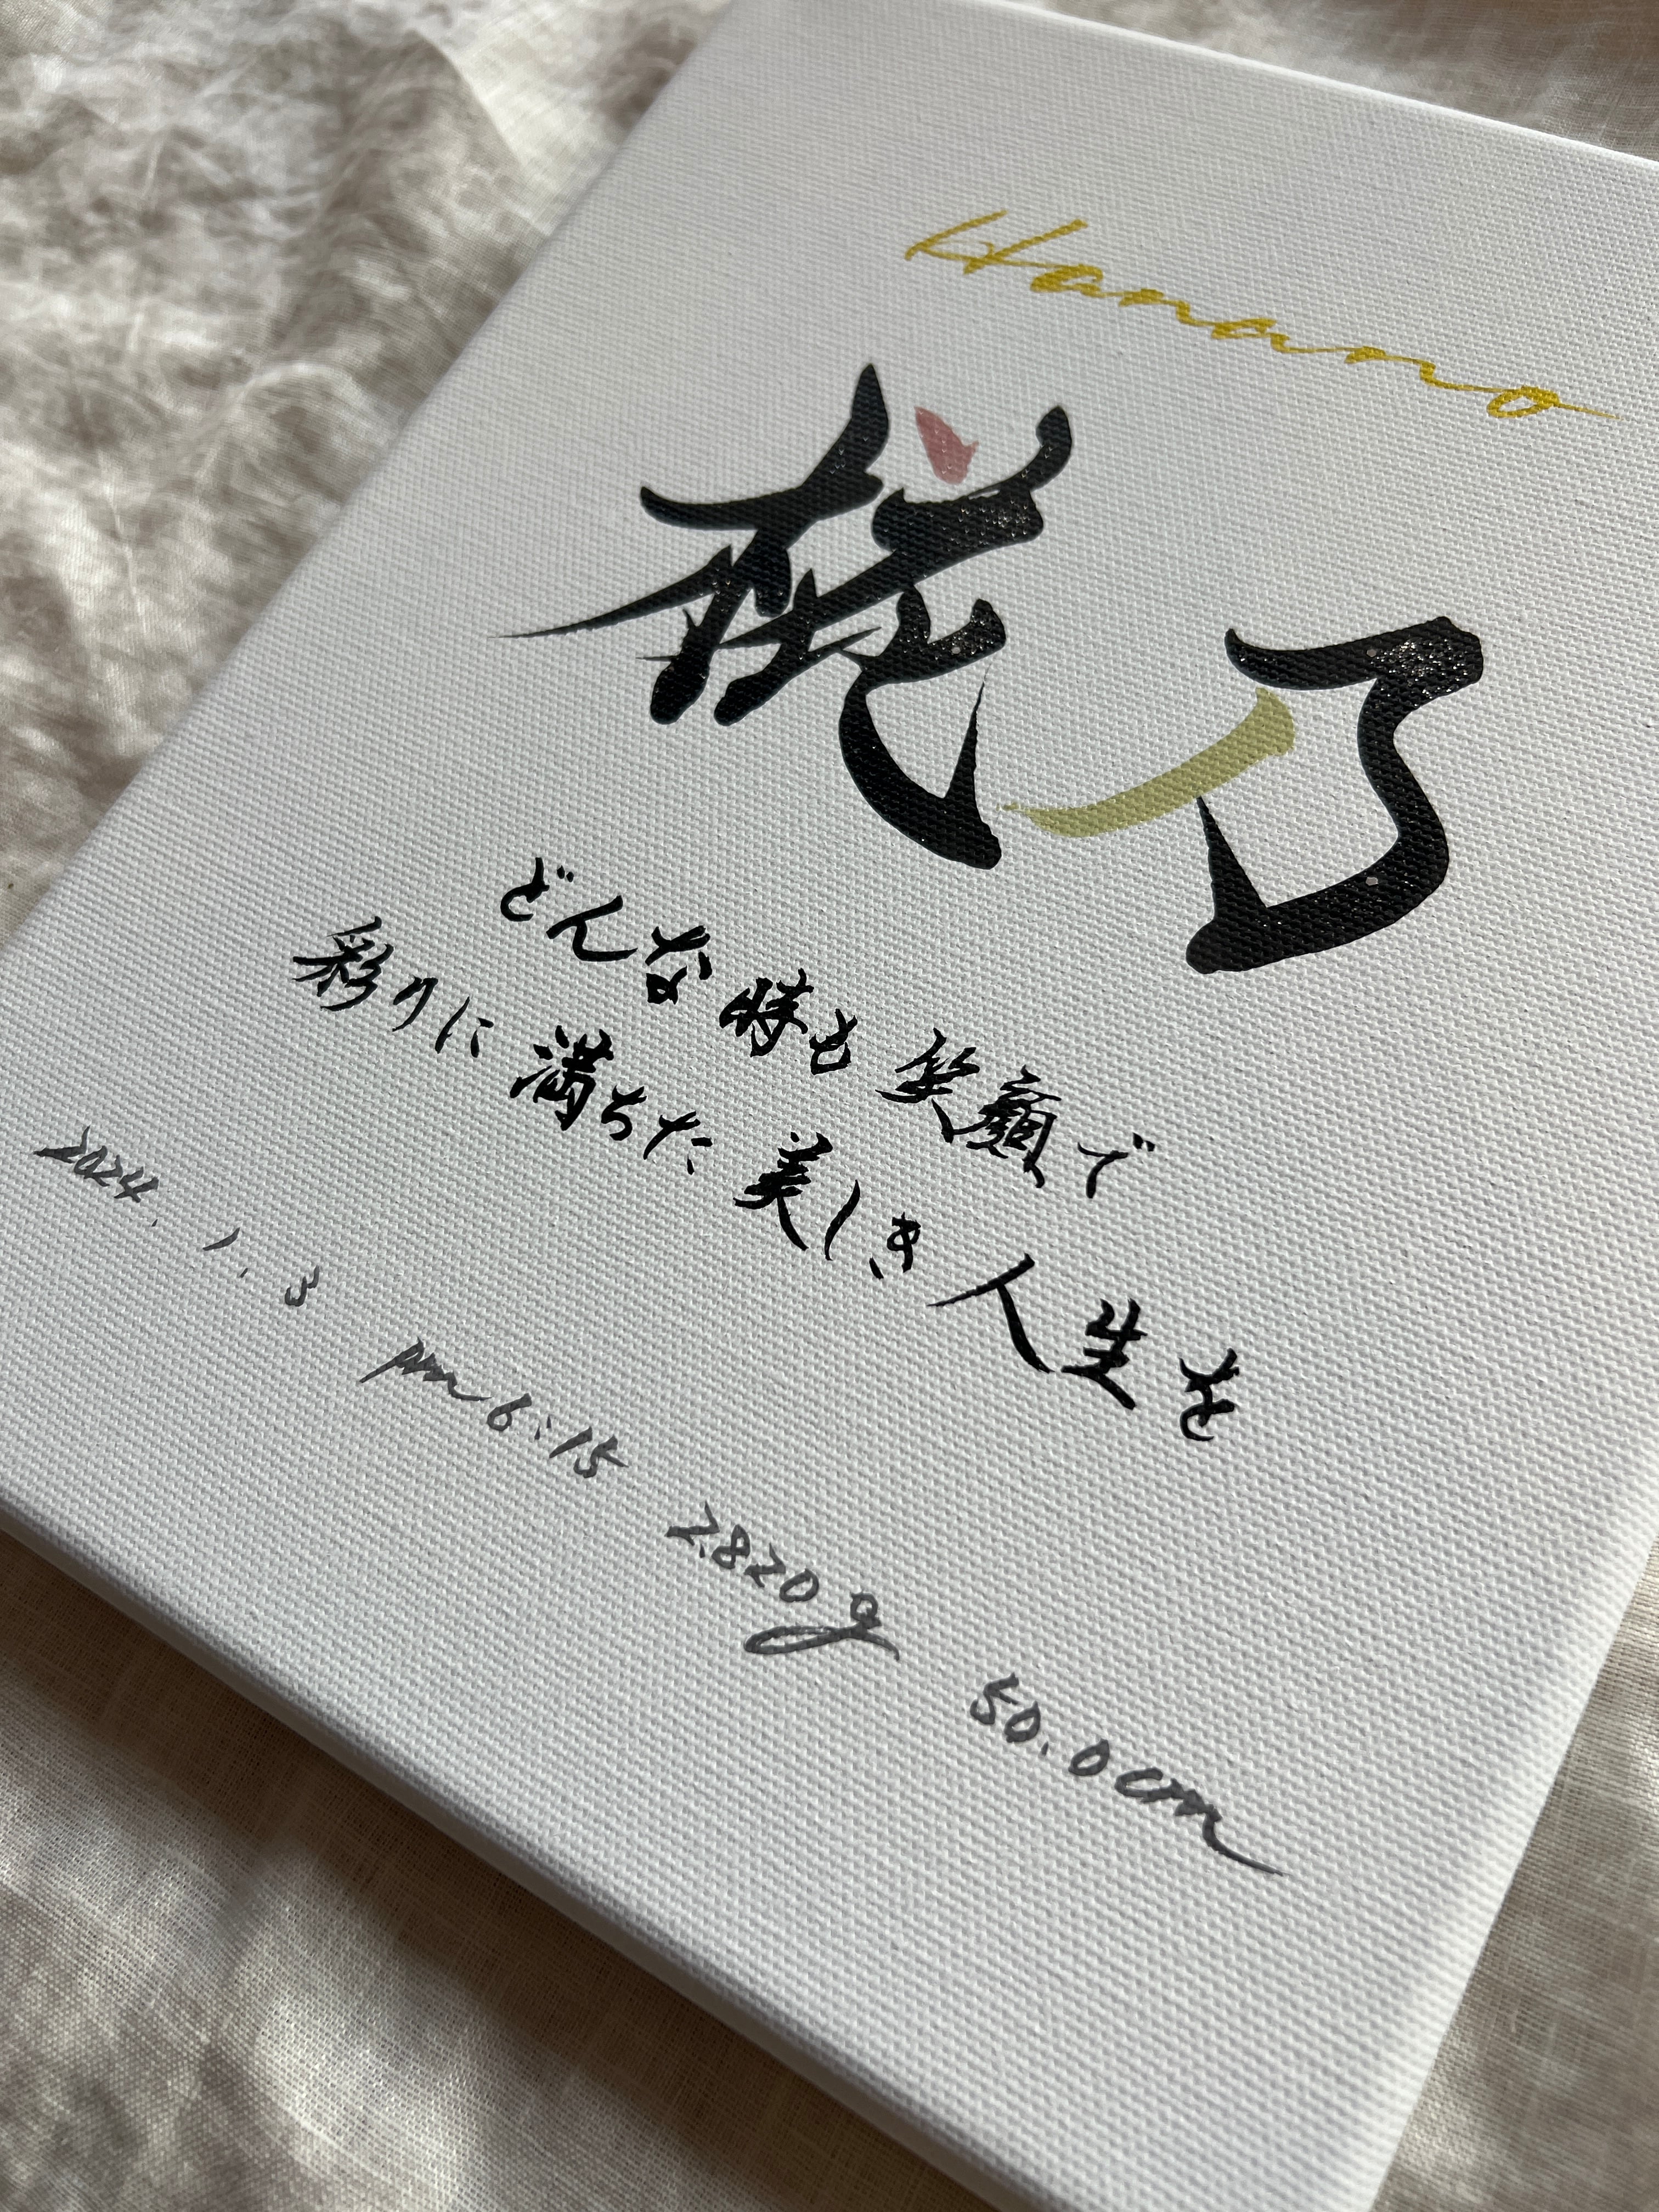 Hanano
椛乃
どんな時も笑顔で
彩りに満ちた美しき人生を
2024.1.3 pm6:15 2,820g 50.0cm